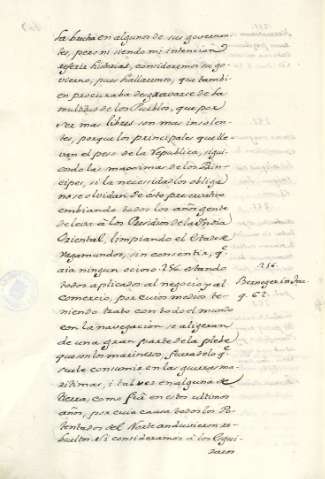 en algunos de sus governan
tes, pero no siendo mi intencion
referir historias, consideremos su go
vierno, pues hallaremos, que tambi
en procuraba desgravarse de la
multitud de los Pueblos, que por
ser mas libres son mas insolen
tes, porque los principales que lle
van el peso de la Republica, sigui
endo las maximas de los Prin
cipes, si la necesidad los oblige
no se olvidan de esto por cuatro
embiando todos los años gente
de leva a los Presidios de la India
Oriental, limpiando el Estado de
Vagamundos, sin consentir, q.e
aia ningun ocioso 216 estando
todos aplicados al negocio y al
comercio, por cuio medio te
niendo trato con todo el mundo
con la navegacion se aligeran
de una gran parte de la plebe
que son los marineros, fuera de lo q.e
suele consumir en las guerras ma
ritimas, i tal ves en alguna de
tierra, como fué en estos ultimos
años, por cuia causa todos los Po
tentados del Norte anduvieron re
bueltos. Si consideramos a los
216.
q. 62.